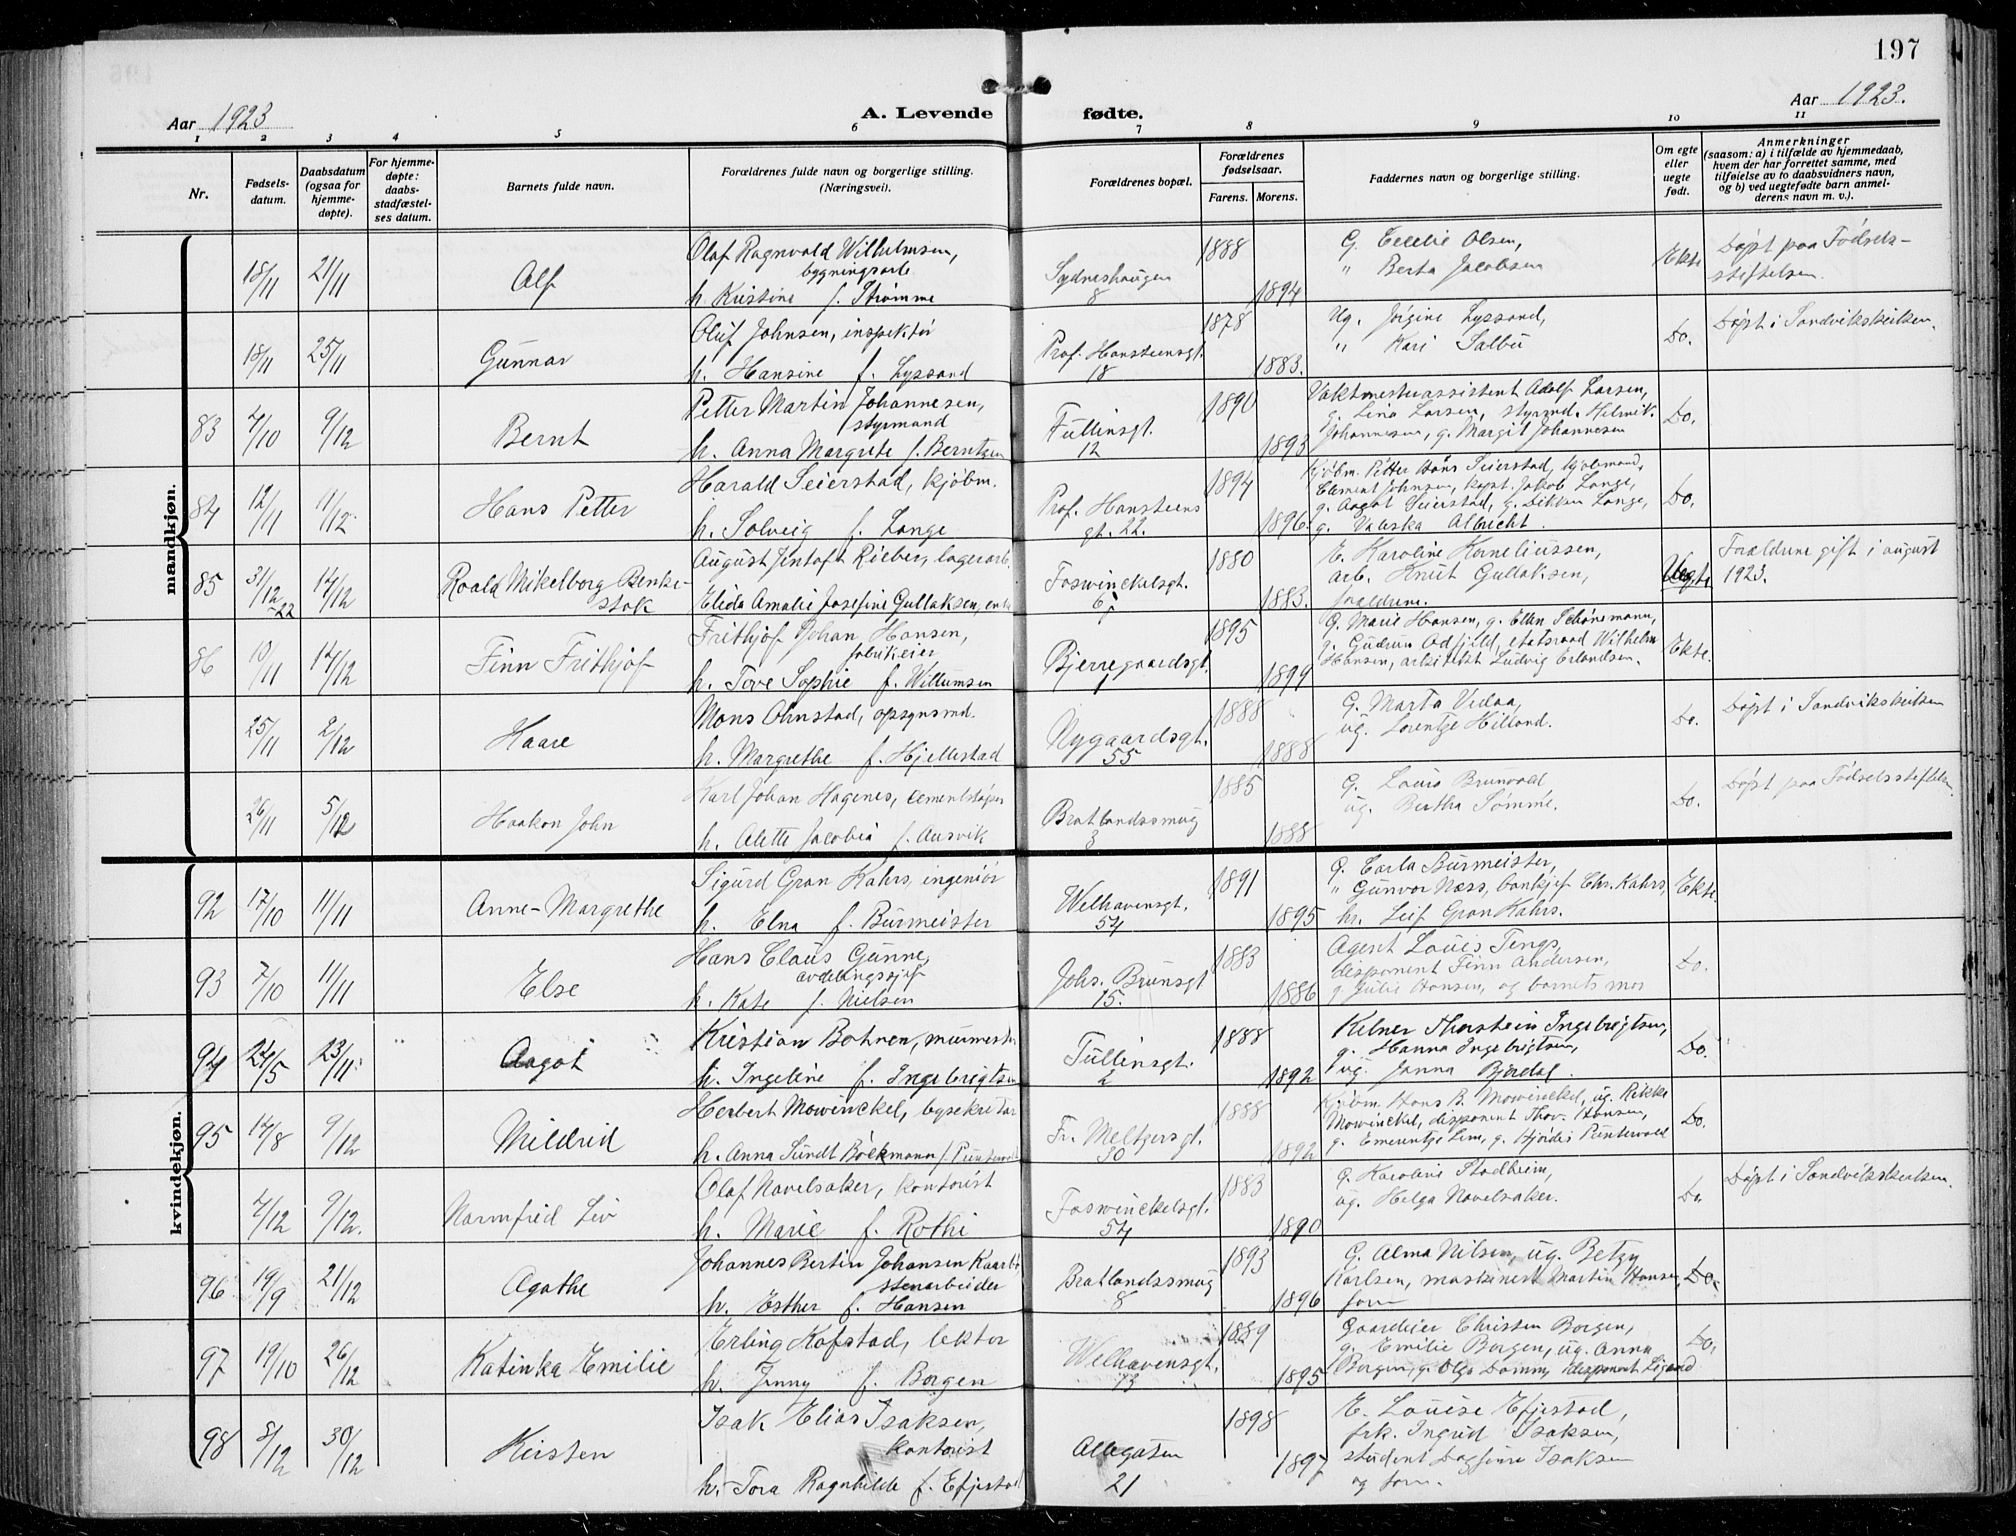 197
Aar 1923
A. Levende fødte.
Aar 1923.
1 2 3 4 5 6 7 8 9 10 11
Nr.
Fødsels-
datum.
Daabsdatum
(ogsaa for
hjemme-
døpte).
For hjemme-
døpte:
daabs-
stadfæstel-
ses datum.
Barnets fulde navn.
Forældrenes fulde navn og borgerlige stilling.
(Næringsvei).
Forældrenes bopæl.
Forældrenes
fødselsaar.
Farens. Morens.
Faddernes navn og borgerlige stilling.
Om egte
eller
uegte
født.
Anmerkninger
(saasom: a) i tilfælde av hjemmedaab,
hvem der har forrettet samme, med
tilføielse av to daabsvidners navn,
og b) ved uegtefødte barn anmel-
derens navn m. v.).
mandkjøn.
18/11 21/11 Alf
Olaf Ragnvald Wilhelmsen,
bygningsarb.
h. Kristine f. Strømme
Sydneshaugen
8
1888 1894
G. Cecelie Olsen,
" Berta Jacobsen
Ekte
Døpt paa Fødsels-
stiftelsen.
18/11 25/11 Gunnar
Oluf Johnsen, inspektør
h. Hansine f. Lyssand
Prof. Hansteensgt.
18
1878 1883.
Ug. Jørgine Lyssand,
" Kari Salbu
Do.
Døpt i Sandvikskirken.
83 7/10 9/12 Bernt
Petter Martin Johannesen,
styrmand
h. Anna Margrete f. Berntzen
Tullinsgt.
12
1890 1893
Vaktmesterassistent Adolf Larsen,
g. Lina Larsen, styrmd. Helmik
Johannesen, g. Margit Johannesen
Do.
84 12/11 11/12. Hans Petter
Harald Seierstad, kjøbm.
h. Solveig f. Lange
Prof. Hansteens
gt. 22.
1894 1896.
Kjøbm. Petter Hans Seierstad, kjøbmand,
Clement Johnsen, kapt. Jakob Lange,
g. Aagot Seierstad, g. Dikken Lange,
g. Valeska Albrecht.
Do.
85 31/12 -22 14/12 Roald Mikelborg Benke-
stok
August Jentoft Rieber, lagerarb.
Elida Amalie Josefine Gullaksen, enke
Foswinckelsgt.
6
1880 1883.
E. Karoline Korneliussen,
arb. Knut Gullaksen,
forældrene.
Uegte
Forældrene gift i august
1923.
86 10/11 14/12 Finn Frithjof
Frithjof Johan Hansen,
fabrikeier
h. Tove Sophie f. Willumsen
Bjerregaardsgt.
1
1895 1899
G. Marie Hansen, g. Ellen Schønemann,
g. Gudrun Odfjeld, etatsraad Wilhelm
Hansen, arkitekt Ludvig Erlandsen.
Ekte.
25/11 2/12 Haare
Mons Ohnstad, opsynsmd.
h. Margrethe f. Hjellestad
Nygaardsgt.
55
1888 1888
G. Marta Vidaa,
ug. Lorentze Hilland.
Do.
Døpt i Sandvikskirken
26/11 5/12 Haakon John
Karl Johan Hagenes, cementstøper
h. Alette Jacobia f. Ausvik
Bratlandssmug
3
1885 1888
G. Laura Brunvold
ug. Bertha Sømme.
Do.
Døpt paa Fødselsstiftelsen
kvindekjøn.
92 17/10 11/11 Anne-Margrethe
Sigurd Gran Kahrs, ingeniør
h. Elna f. Burmeister
Welhavensgt.
54
1891 1895
G. Carla Burmeister,
" Gunvor Næss, bankjef Chr. Kahrs,
hr. Leif Gran Kahrs.
Ekte.
93 7/10 11/11 Else
Hans Claus Gunne,
avdelingssjef
h. Kate f. Nielsen
Johs. Brunsgt
15.
1883 1886
Agent Louis Tengs,
disponent Finn Andersen,
g. Julie Hansen, og barnets mor
Do.
94 24/5 23/11. Aagot
Kristian Bohnen, murmester
h. Ingeline f. Ingebrigtsen
Tullinsgt.
2
1888 1892
Kelner Thorstein Ingebrigtsen,
g. Hanna Ingebrigtsen,
ug. Janna Bjordal.
Do.
95 14/8 9/12 Mildrid
Herbert Mowinckel, bysekretær
h. Anna Sundt Bøckmann f. Puntervold
Fr. Meltzersgt.
30
1888 1892
Kjøbm. Hans B. Mowinckel, ug. Rikke
Mowinckel, disponent Thov. Hansen,
g. Emerentze Lem, g. Hjørdis Puntervold
Do.
7/12 9/12. Normfrid Liv
Olaf Navelsaker, kontorist
h. Marie f. Rothi
Foswinckelsgt.
54
1883 1890
G. Karoline Stadheim,
ug. Helga Navelsaker.
Do.
Døpt i Sandvikskirken.
96 19/9 21/12 Agathe
Johannes Bertin Johansen Kaarbø
stenarbeider
h. Esther f. Hansen
Bratlandssmug
8
1893 1896
G. Alma Nilsen, ug. Betzy
Karlsen, maskinest Martin Hansen,
forr.
Do.
97 19/10 26/12 Katinka Emilie
Erling Kofstad, lektor
h. Jenny f. Borgen
Welhavensgt.
73
1889 1895
Gaardeier Christen Borgen,
g. Emilie Borgen, ug. Anna
Borgen, g. Olga Dammy, disponent Ligaard
Do.
98 8/12 30/12 Kirsten
Isak Elias Isaksen,
kontorist
h. Tora Ragnhilde f. Efjestad
Allegaten
21
1898 1897
E. Louise Efjestad,
frk. Ingrid Isaksen,
student Dagfinn Isaksen
og forr.